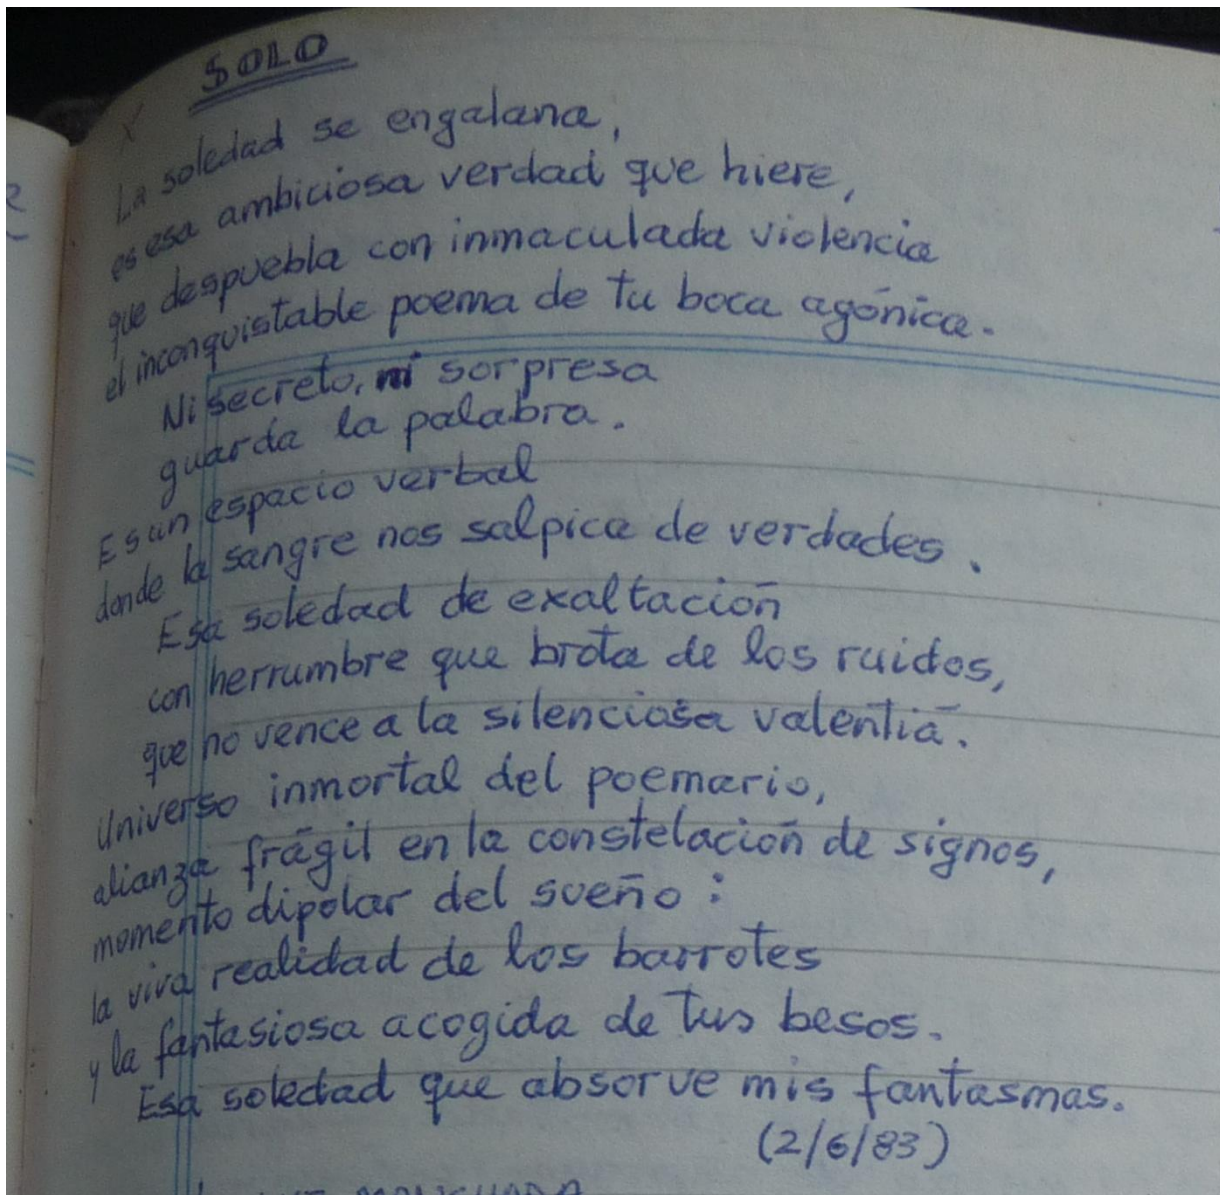 SOLO
La soledad se engalana,
es esa ambiciosa verdad que hiere,
que despuebla con inmaculada violencia
el inconquistable poema de tu boca agónica.
Ni secreto, ni sorpresa
guarda la palabra.
Es un espacio verbal
donde la sangre nos salpica de verdades.
Esa soledad de exaltación
con herrumbre que brota de los ruidos,
que no vence a la silenciosa valentía.
Universo inmortal del poemario,
alianza frágil en la constelación de signos,
momento dipolar del sueño:
la viva realidad de los barrotes
y la fantasiosa acogida de tus besos.
Esa soledad que absorve mis fantasmas.
(2/6/83)